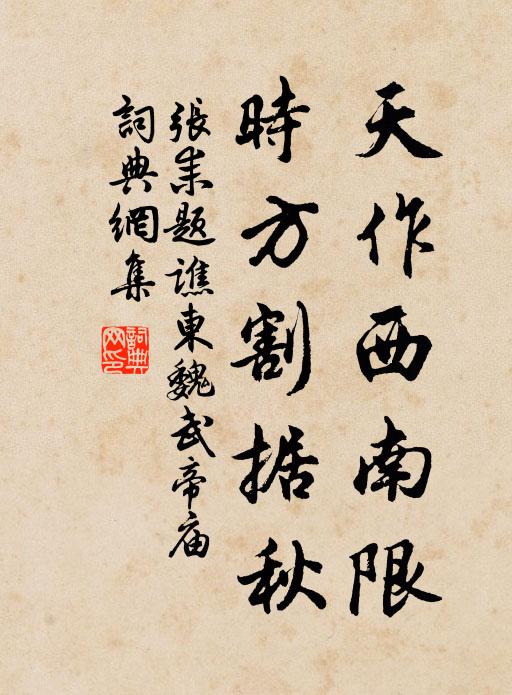 天作西南限
時方割据秋
張耒題譙東魏武帝庙
詞典網集
詞典網印